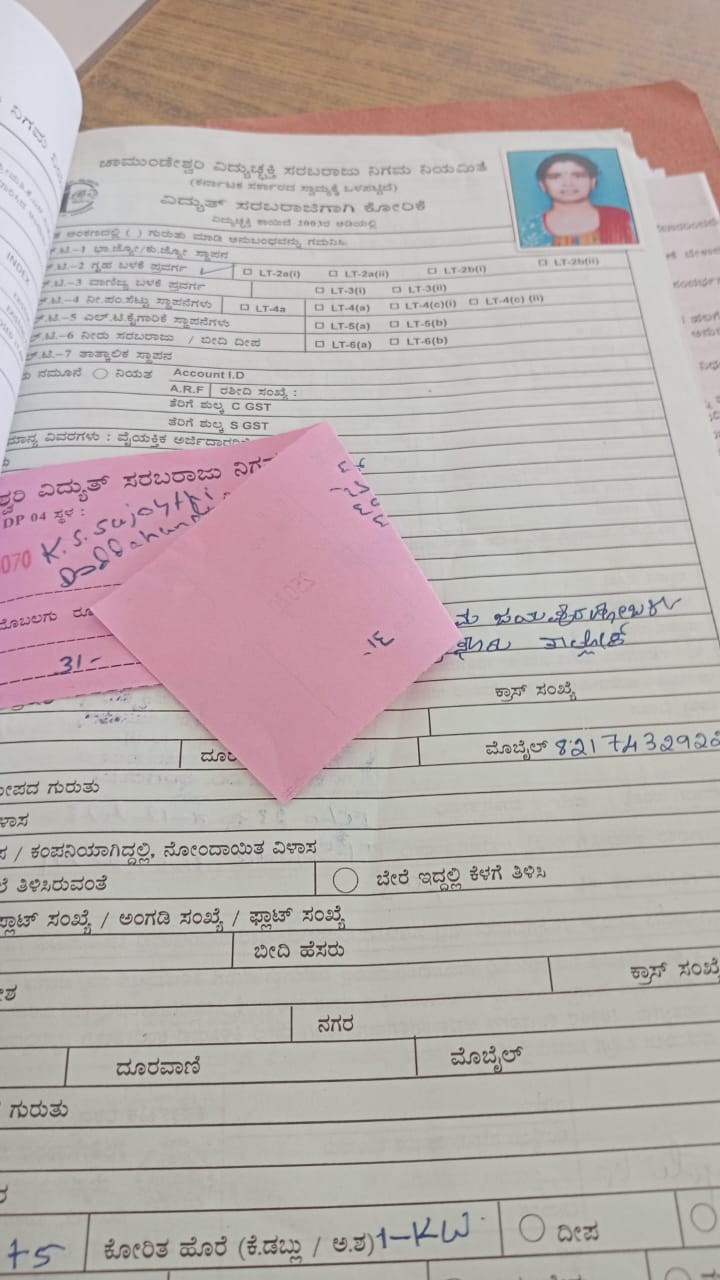 ನಿಗಮ ನಿ
INDEX
ಚಾಮುಂಡೇಶ್ವರಿ ವಿದ್ಯುಚ್ಛಕ್ತಿ ಸರಬರಾಜು ನಿಗಮ ನಿಯಮಿತ
(ಕರ್ನಾಟಕ ಸರ್ಕಾರದ ಸ್ವಾಮ್ಯಕ್ಕೆ ಒಳಪಟ್ಟಿದೆ)
ವಿದ್ಯುತ್ ಸರಬರಾಜಿಗಾಗಿ ಕೋರಿಕೆ
ವಿದ್ಯುಚ್ಛಕ್ತಿ ಕಾಯಿದೆ 2003ರ ಅಡಿಯಲ್ಲಿ
ಅಂಕಣದಲ್ಲಿ ( ) ಗುರುತು ಮಾಡಿ ಅನುಬಂಧವನ್ನು ಗಮನಿಸಿ
.ಟಿ.-1 ಭಾ.ಜ್ಯೋ/ಕು.ಜ್ಯೋ ಸ್ಥಾಪನ
.ಟಿ.-2 ಗೃಹ ಬಳಕೆ ಪ್ರವರ್ಗ ✓ ☐ LT-2a(i) ☐ LT-2a(ii) ☐ LT-2b(i) ☐ LT-2b(ii)
.ಟಿ.-3 ವಾಣಿಜ್ಯ ಬಳಕೆ ಪ್ರವರ್ಗ ☐ LT-3(i) ☐ LT-3(ii)
.ಟಿ.-4 ನೀ.ಪಂ.ಸೆಟ್ಟು ಸ್ಥಾಪನೆಗಳು ☐ LT-4a ☐ LT-4(a) ☐ LT-4(c)(i) ☐ LT-4(c) (ii)
.ಟಿ.-5 ಎಲ್.ಟಿ.ಕೈಗಾರಿಕೆ ಸ್ಥಾಪನೆಗಳು ☐ LT-5(a) ☐ LT-5(b)
.ಟಿ.-6 ನೀರು ಸರಬರಾಜು / ಬೀದಿ ದೀಪ ☐ LT-6(a) ☐ LT-6(b)
.ಟಿ.-7 ತಾತ್ಕಾಲಿಕ ಸ್ಥಾಪನ
ನಮೂನೆ ○ ನಿಯತ Account I.D
A.R.F ರಶೀದಿ ಸಂಖ್ಯೆ :
ತೆರಿಗೆ ಶುಲ್ಕ C GST
ತೆರಿಗೆ ಶುಲ್ಕ S GST
ಮಾನ್ಯ ವಿವರಗಳು : ವೈಯಕ್ತಿಕ
ಶ್ವರಿ ವಿದ್ಯುತ್ ಸರಬರಾಜು ನಿಗ
DP 04 ಸ್ಥಳ :
070 K.S. Sujoythi
ಮೊಬಲಗು ರೂ
31-
ತಾಲ್ಲೂಕ್
ಕ್ರಾಸ್ ಸಂಖ್ಯೆ
ದೂರ ಮೊಬೈಲ್ 821743292
ೀಪದ ಗುರುತು
ಳಾಸ
/ ಕಂಪನಿಯಾಗಿದ್ದಲ್ಲಿ, ನೋಂದಾಯಿತ ವಿಳಾಸ
ತಿಳಿಸಿರುವಂತೆ ○ ಬೇರೆ ಇದ್ದಲ್ಲಿ ಕೆಳಗೆ ತಿಳಿಸಿ
ಪ್ಲಾಟ್ ಸಂಖ್ಯೆ / ಅಂಗಡಿ ಸಂಖ್ಯೆ / ಫ್ಲಾಟ್ ಸಂಖ್ಯೆ
ಬೀದಿ ಹೆಸರು
ಕ್ರಾಸ್ ಸಂಖ್ಯೆ
ನಗರ
ದೂರವಾಣಿ ಮೊಬೈಲ್
ಗುರುತು
75 ಕೋರಿತ ಹೊರೆ (ಕೆ.ಡಬ್ಲು / ಅ.ಶ) 1-KW ○ ದೀಪ